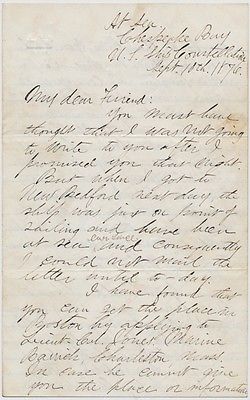 At Sea
Chesapeake Bay
U. S. Ship Constellation
Sept. 10th, 1876.
My dear Friend:
You must have
thought that I was not going
to write to you after I
promised you that night.
But when I got to
New Bedford next day the
ship was just on point of
Sailing and have been
at sea ever since and consequently
I could not mail the
letter until to-day.
I have found that
you can get the place in
Boston by applying to
Lieut. Col. Jones, Marine
Barracks Charleston Mass.
In case he cannot give
you the place or information